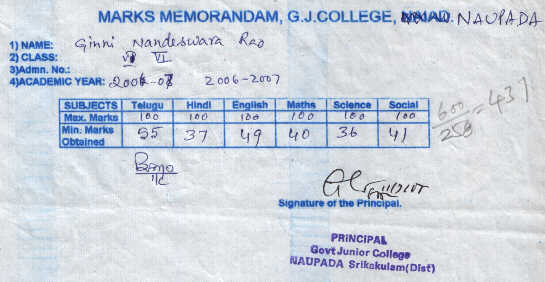 MARKS MEMORANDAM, G.J.COLLEGE, NAUPADA
1) NAME: Ginni Nandeswara Rao
2) CLASS: VI VI
3)Admn. No.:
4)ACADEMIC YEAR: 2006-07 2006-2007
SUBJECTS Telugu Hindi English Maths Science Social
Max. Marks 100 100 100 100 100 100
Min. Marks Obtained 55 37 49 40 36 41
600/258 = 43%
I/C
Signature of the Principal.
PRINCIPAL
Govt Junior College
NAUPADA Srikakulam(Dist)